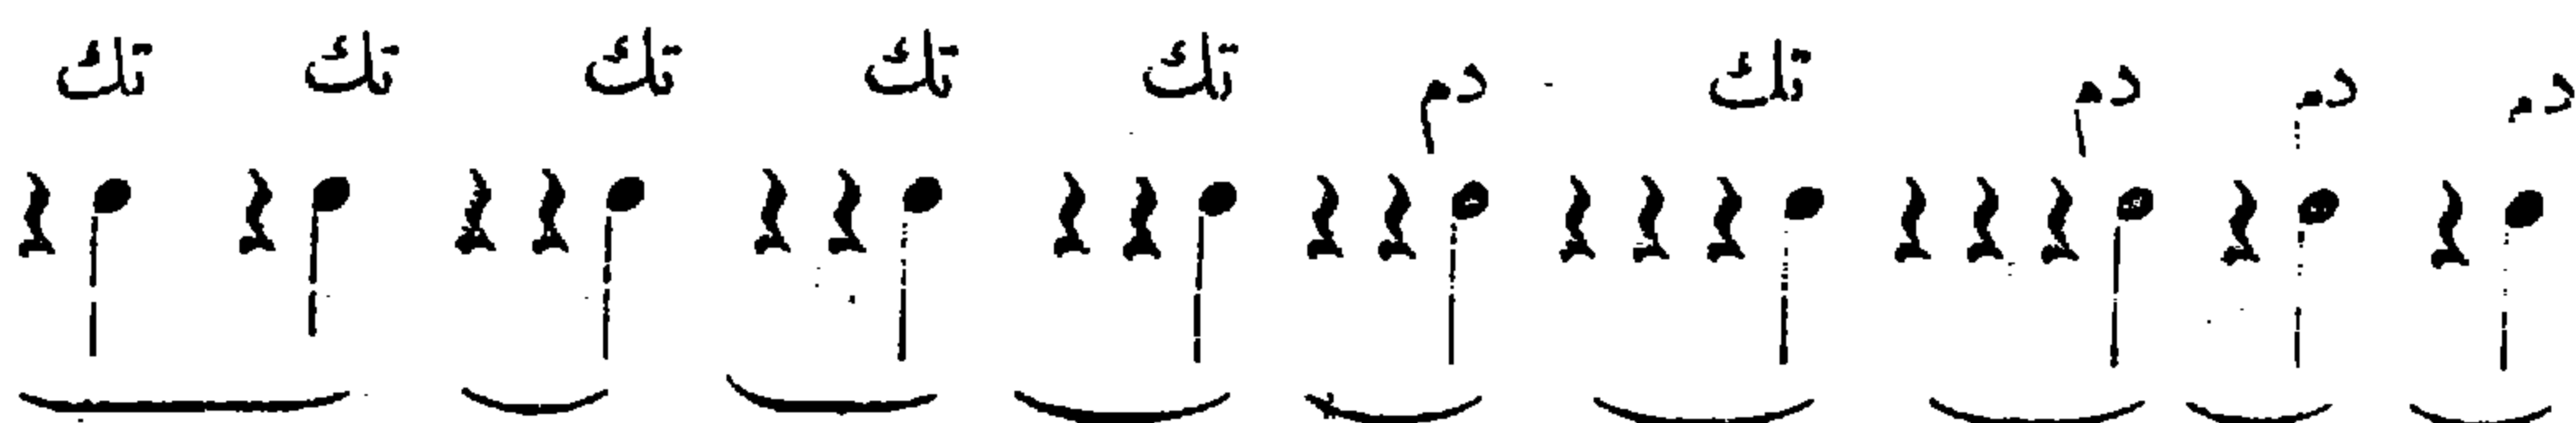 دم دم دم تك دم تك تك تك تك تك